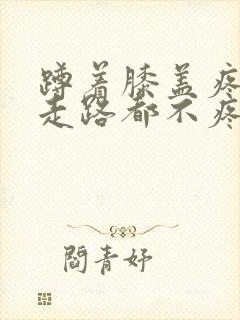 蹲着膝盖疼
走路都不疼
閻青妤